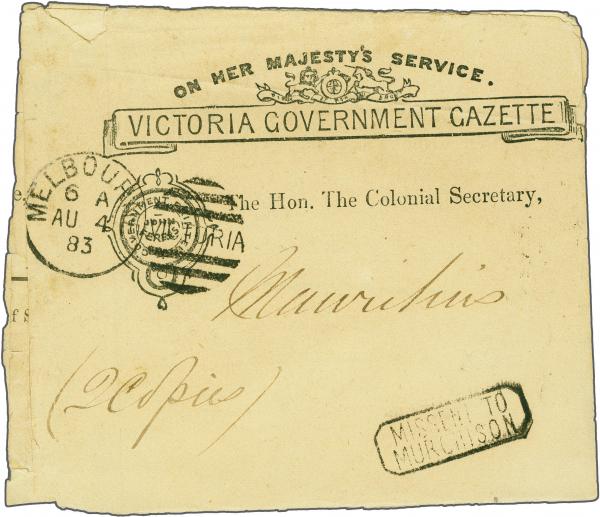 ON HER MAJESTY'S SERVICE.
VICTORIA GOVERNMENT GAZETTE
MELBOUR
6 A
AU 4
83
VICTORIA
The Hon. The Colonial Secretary,
Mauritius
(2 Copies)
MISSENT TO
MURCHISON
f S